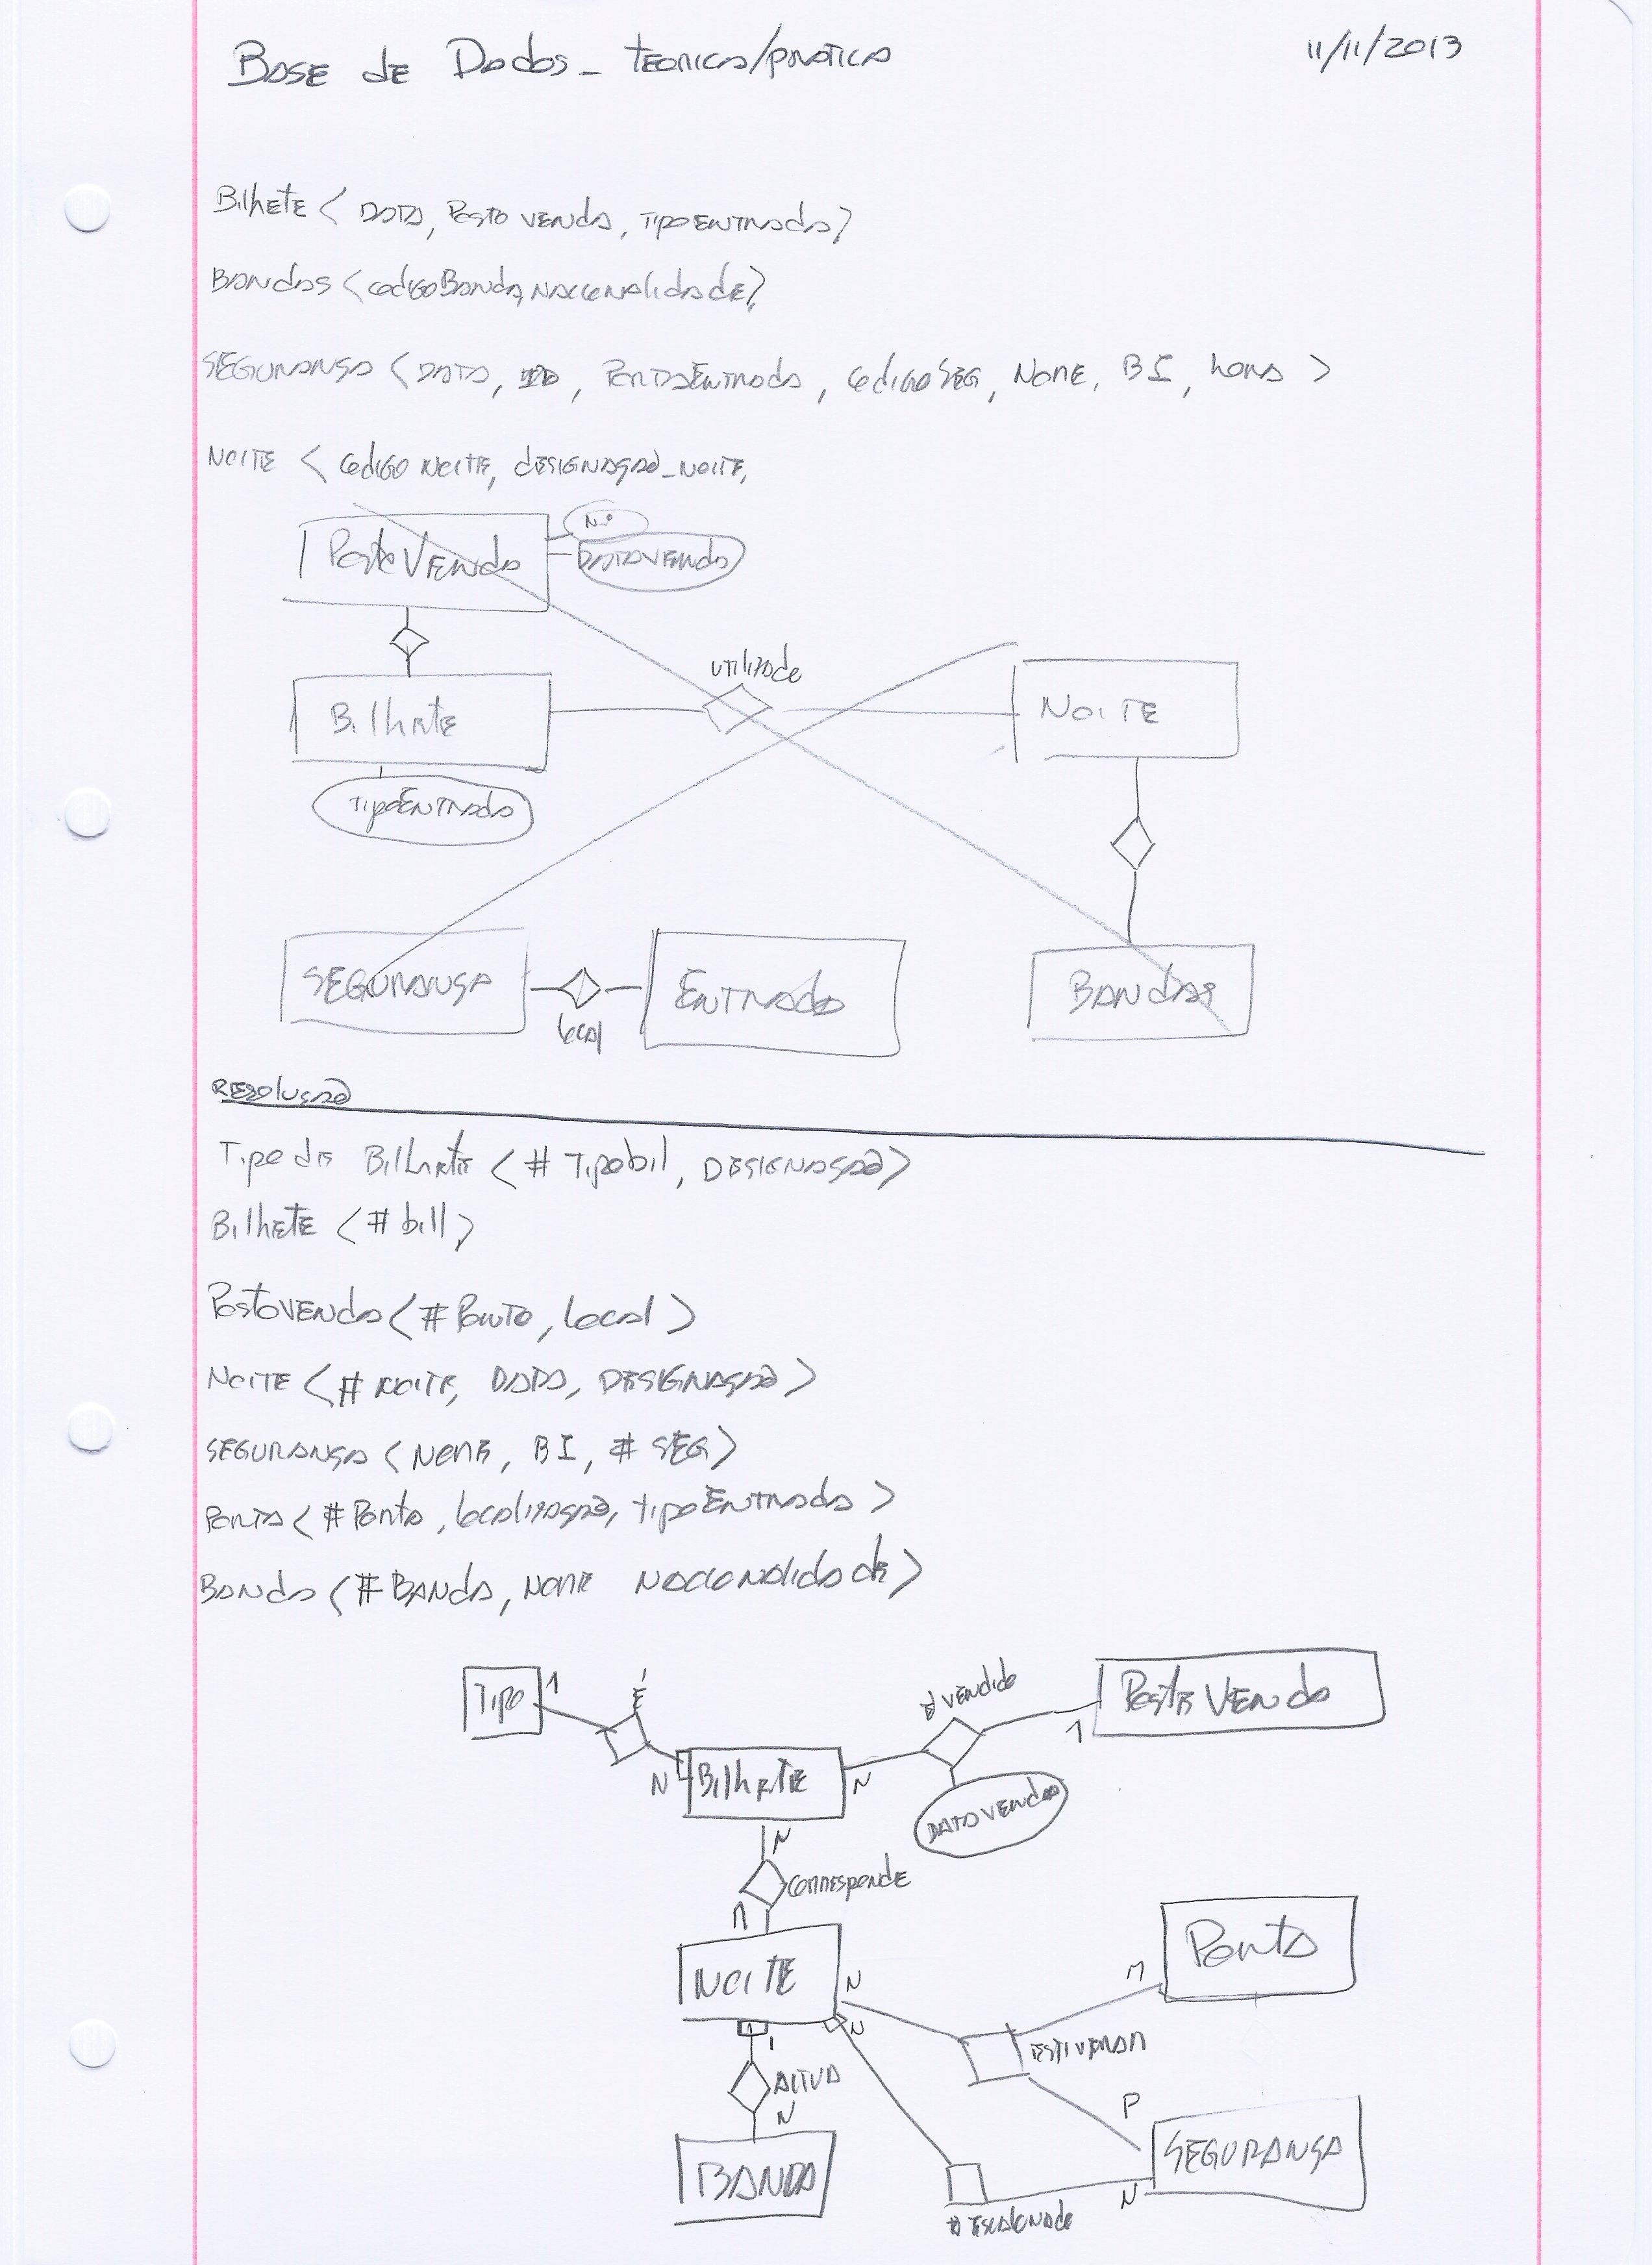 Base de Dados_ teorica/pratica 11/11/2013
Bilhete < data, Posto venda, tipoentrada>
Bandas <codigoBanda, nacionalidade>
Segurança < data, ID, PortaEntrada, codigoSeg, nome, BI, hora >
Noite < codigo noite, designação_noite,
PostoVenda
Nº
DataVenda
utilizade
Bilhete
Noite
tipoEntrada
Segurança
local
Entrada
Bandas
Resolução
Tipo de Bilhete < # Tipobil, Designação>
Bilhete < # bill>
Postovenda < # Ponto, local >
Noite < # noite, Data, Designação >
Segurança < nome, BI, # Seg>
Porta < # Porta, localização, tipoEntrada >
Banda < # Banda, nome nacionalidade>
Tipo 1
É
N Bilhete N
é vendido
1 Posto Venda
DataVenda
N
corresponde
M
Noite N
N
M Porta
estiveram
P
Segurança
N
é escalonado
1
Altua
N
Banda